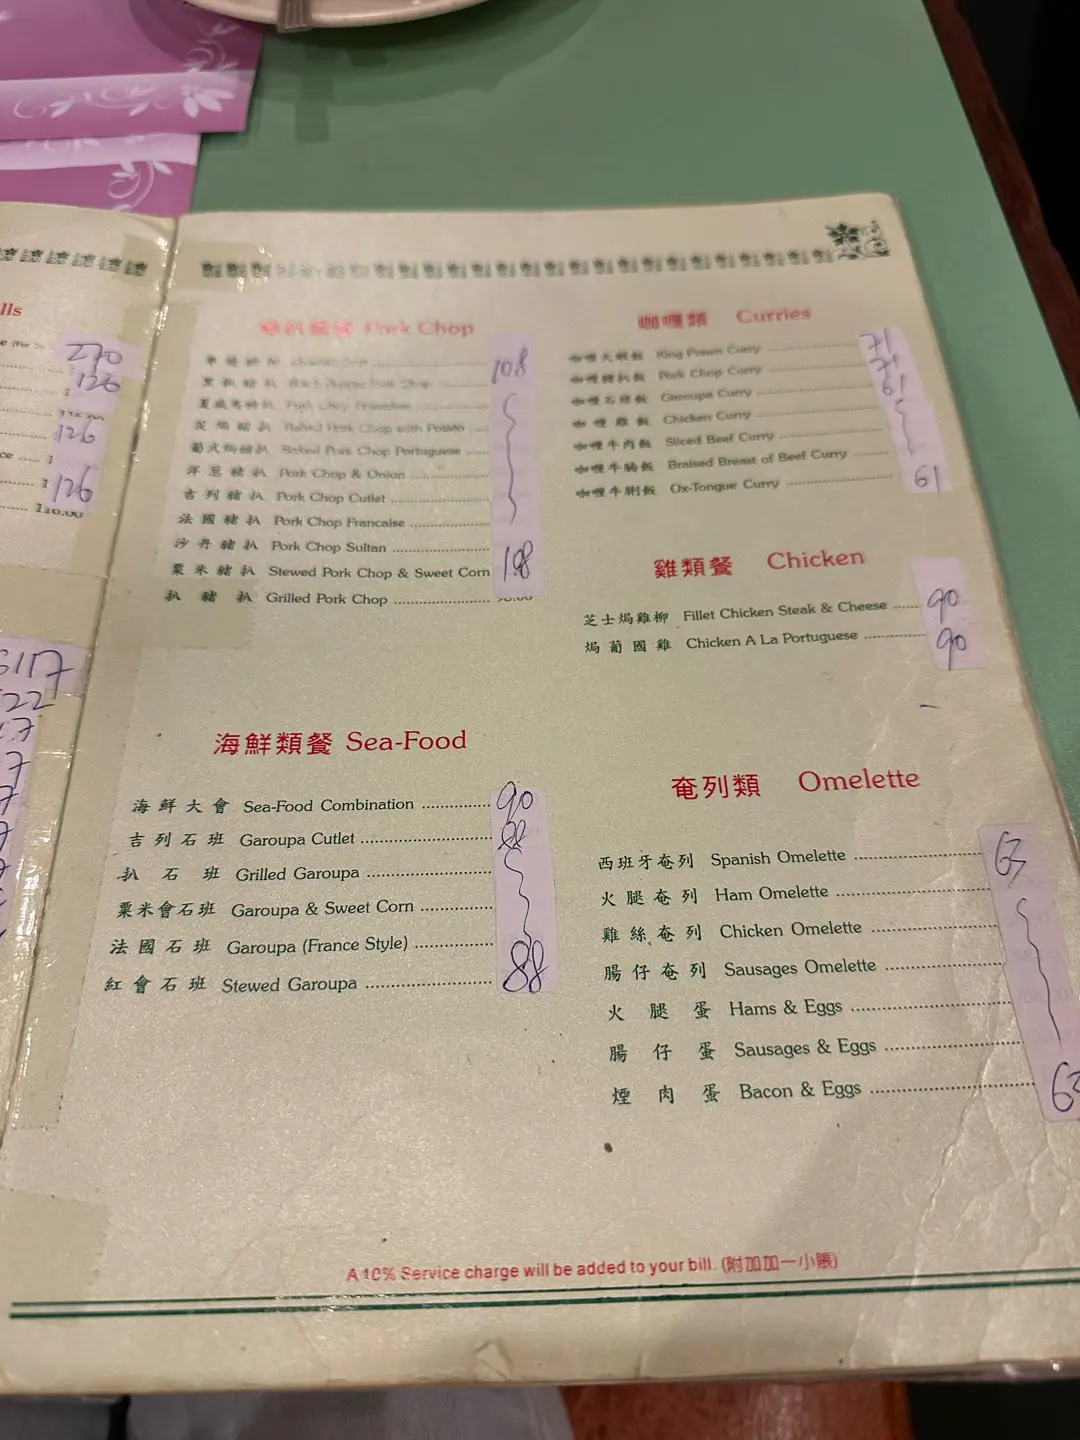 lls
270
126
126
126
116.00
117
22
豬扒類餐 Pork Chop
108
黑椒豬扒 Black Pepper Pork Chop
夏威夷豬扒 Pork Chop Hawaiian
茨焗豬扒 Baked Pork Chop with Potato
葡式焗豬扒 Baked Pork Chop Portuguese
洋葱豬扒 Pork Chop & Onion
吉列豬扒 Pork Chop Cutlet
法國豬扒 Pork Chop Francaise
沙丹豬扒 Pork Chop Sultan
粟米豬扒 Stewed Pork Chop & Sweet Corn 108
扒豬扒 Grilled Pork Chop
海鮮類餐 Sea-Food
海鮮大會 Sea-Food Combination 90
吉列石班 Garoupa Cutlet 88
扒石班 Grilled Garoupa
粟米會石班 Garoupa & Sweet Corn
法國石班 Garoupa (France Style)
紅會石班 Stewed Garoupa 88
咖喱類 Curries
咖喱大蝦飯 King Prawn Curry 71
咖喱豬扒飯 Pork Chop Curry 71
咖喱石班飯 Garoupa Curry 61
咖喱雞飯 Chicken Curry
咖喱牛肉飯 Sliced Beef Curry
咖喱牛腩飯 Braised Breast of Beef Curry
咖喱牛脷飯 Ox-Tongue Curry 61
雞類餐 Chicken
芝士焗雞柳 Fillet Chicken Steak & Cheese 90
焗葡國雞 Chicken A La Portuguese 90
奄列類 Omelette
西班牙奄列 Spanish Omelette 63
火腿奄列 Ham Omelette
雞絲奄列 Chicken Omelette
腸仔奄列 Sausages Omelette
火腿蛋 Hams & Eggs
腸仔蛋 Sausages & Eggs
煙肉蛋 Bacon & Eggs 63
A 10% Service charge will be added to your bill. (附加加一小賬)